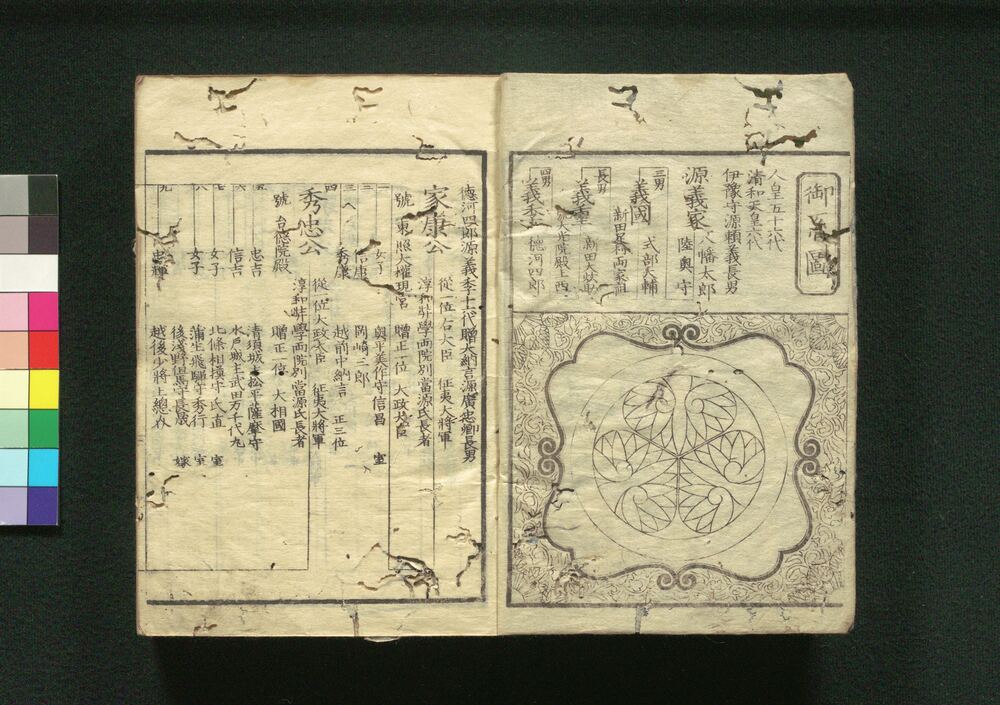 御系圖
人皇五十六代
清和天皇六代
伊豫守源頼義長男
源義家 八幡太郎
陸奥守
三男
義國 式部大輔
新田足利両家祖
長男
義重 新田大炊助
大光院殿上西
四男
義季 徳河四郎
徳河四郎源義季十二代贈大納言源廣忠卿長男
家康公
從一位右大臣 征夷大將軍
淳和奨學両院別當源氏長者
號 東照大權現宮 贈正一位 太政大臣
一 女子 奥平美作守信昌 室
二 信康 岡崎三郎
三 秀康 越前中納言 正三位
四
秀忠公
從一位太政大臣 征夷大將軍
淳和奨學両院別當源氏長者
號 台徳院殿 贈正一位 大相國
五 忠吉 清須城主松平薩摩守
六 信吉 水戸城主武田万千代丸
七 女子 北條相模守氏直 室
八 女子 蒲生飛騨守秀行 室
後淺野但馬守長晟 嫁
九 忠輝 越後少將上總介